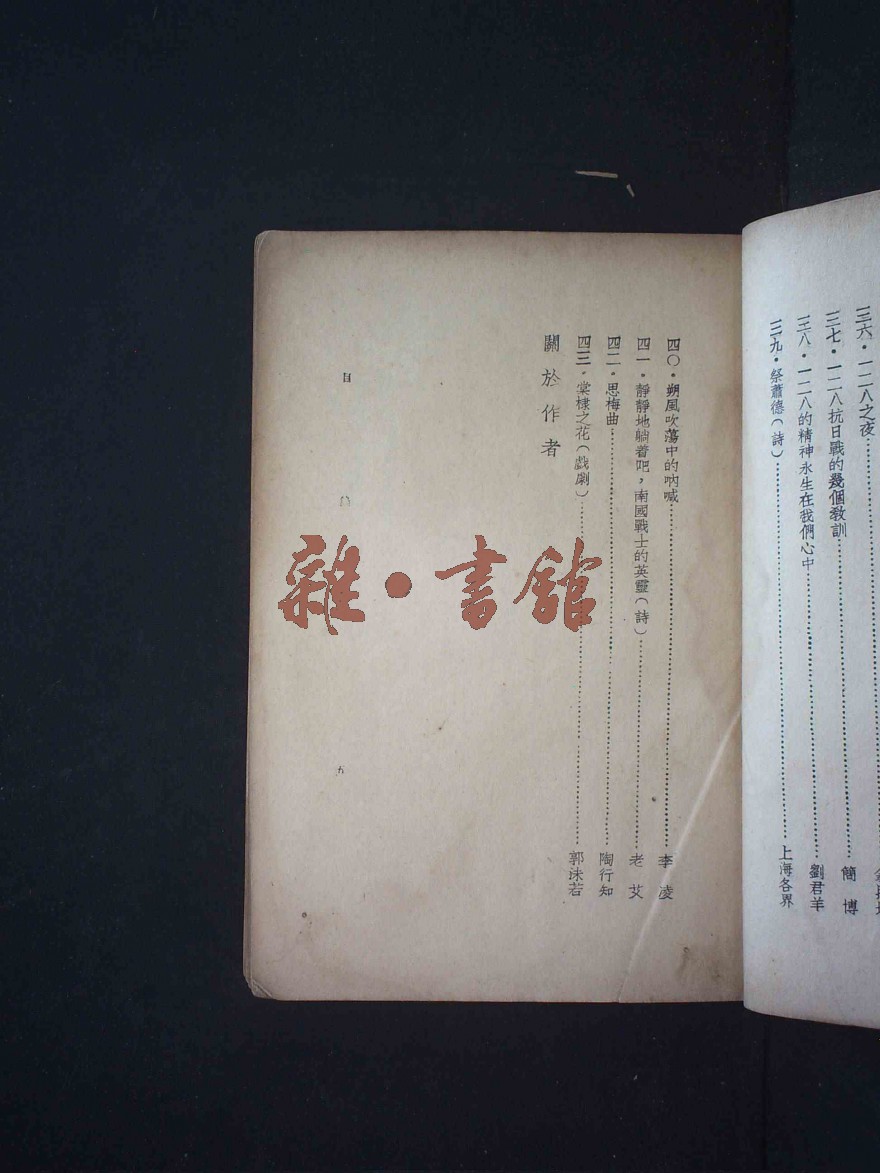 三六・一二八之夜
三七・一二八抗日戰的幾個教訓……簡 博
三八・一二八的精神永生在我們心中……劉君羊
三九・祭蕭德(詩)……上海各界
四〇・朔風吹蕩中的吶喊……李 凌
四一・靜靜地躺着吧,南國戰士的英靈(詩)……老 艾
四二・思梅曲……陶行知
四三・棠棣之花(戯劇)……郭沫若
關於作者
目
五
雜・書館